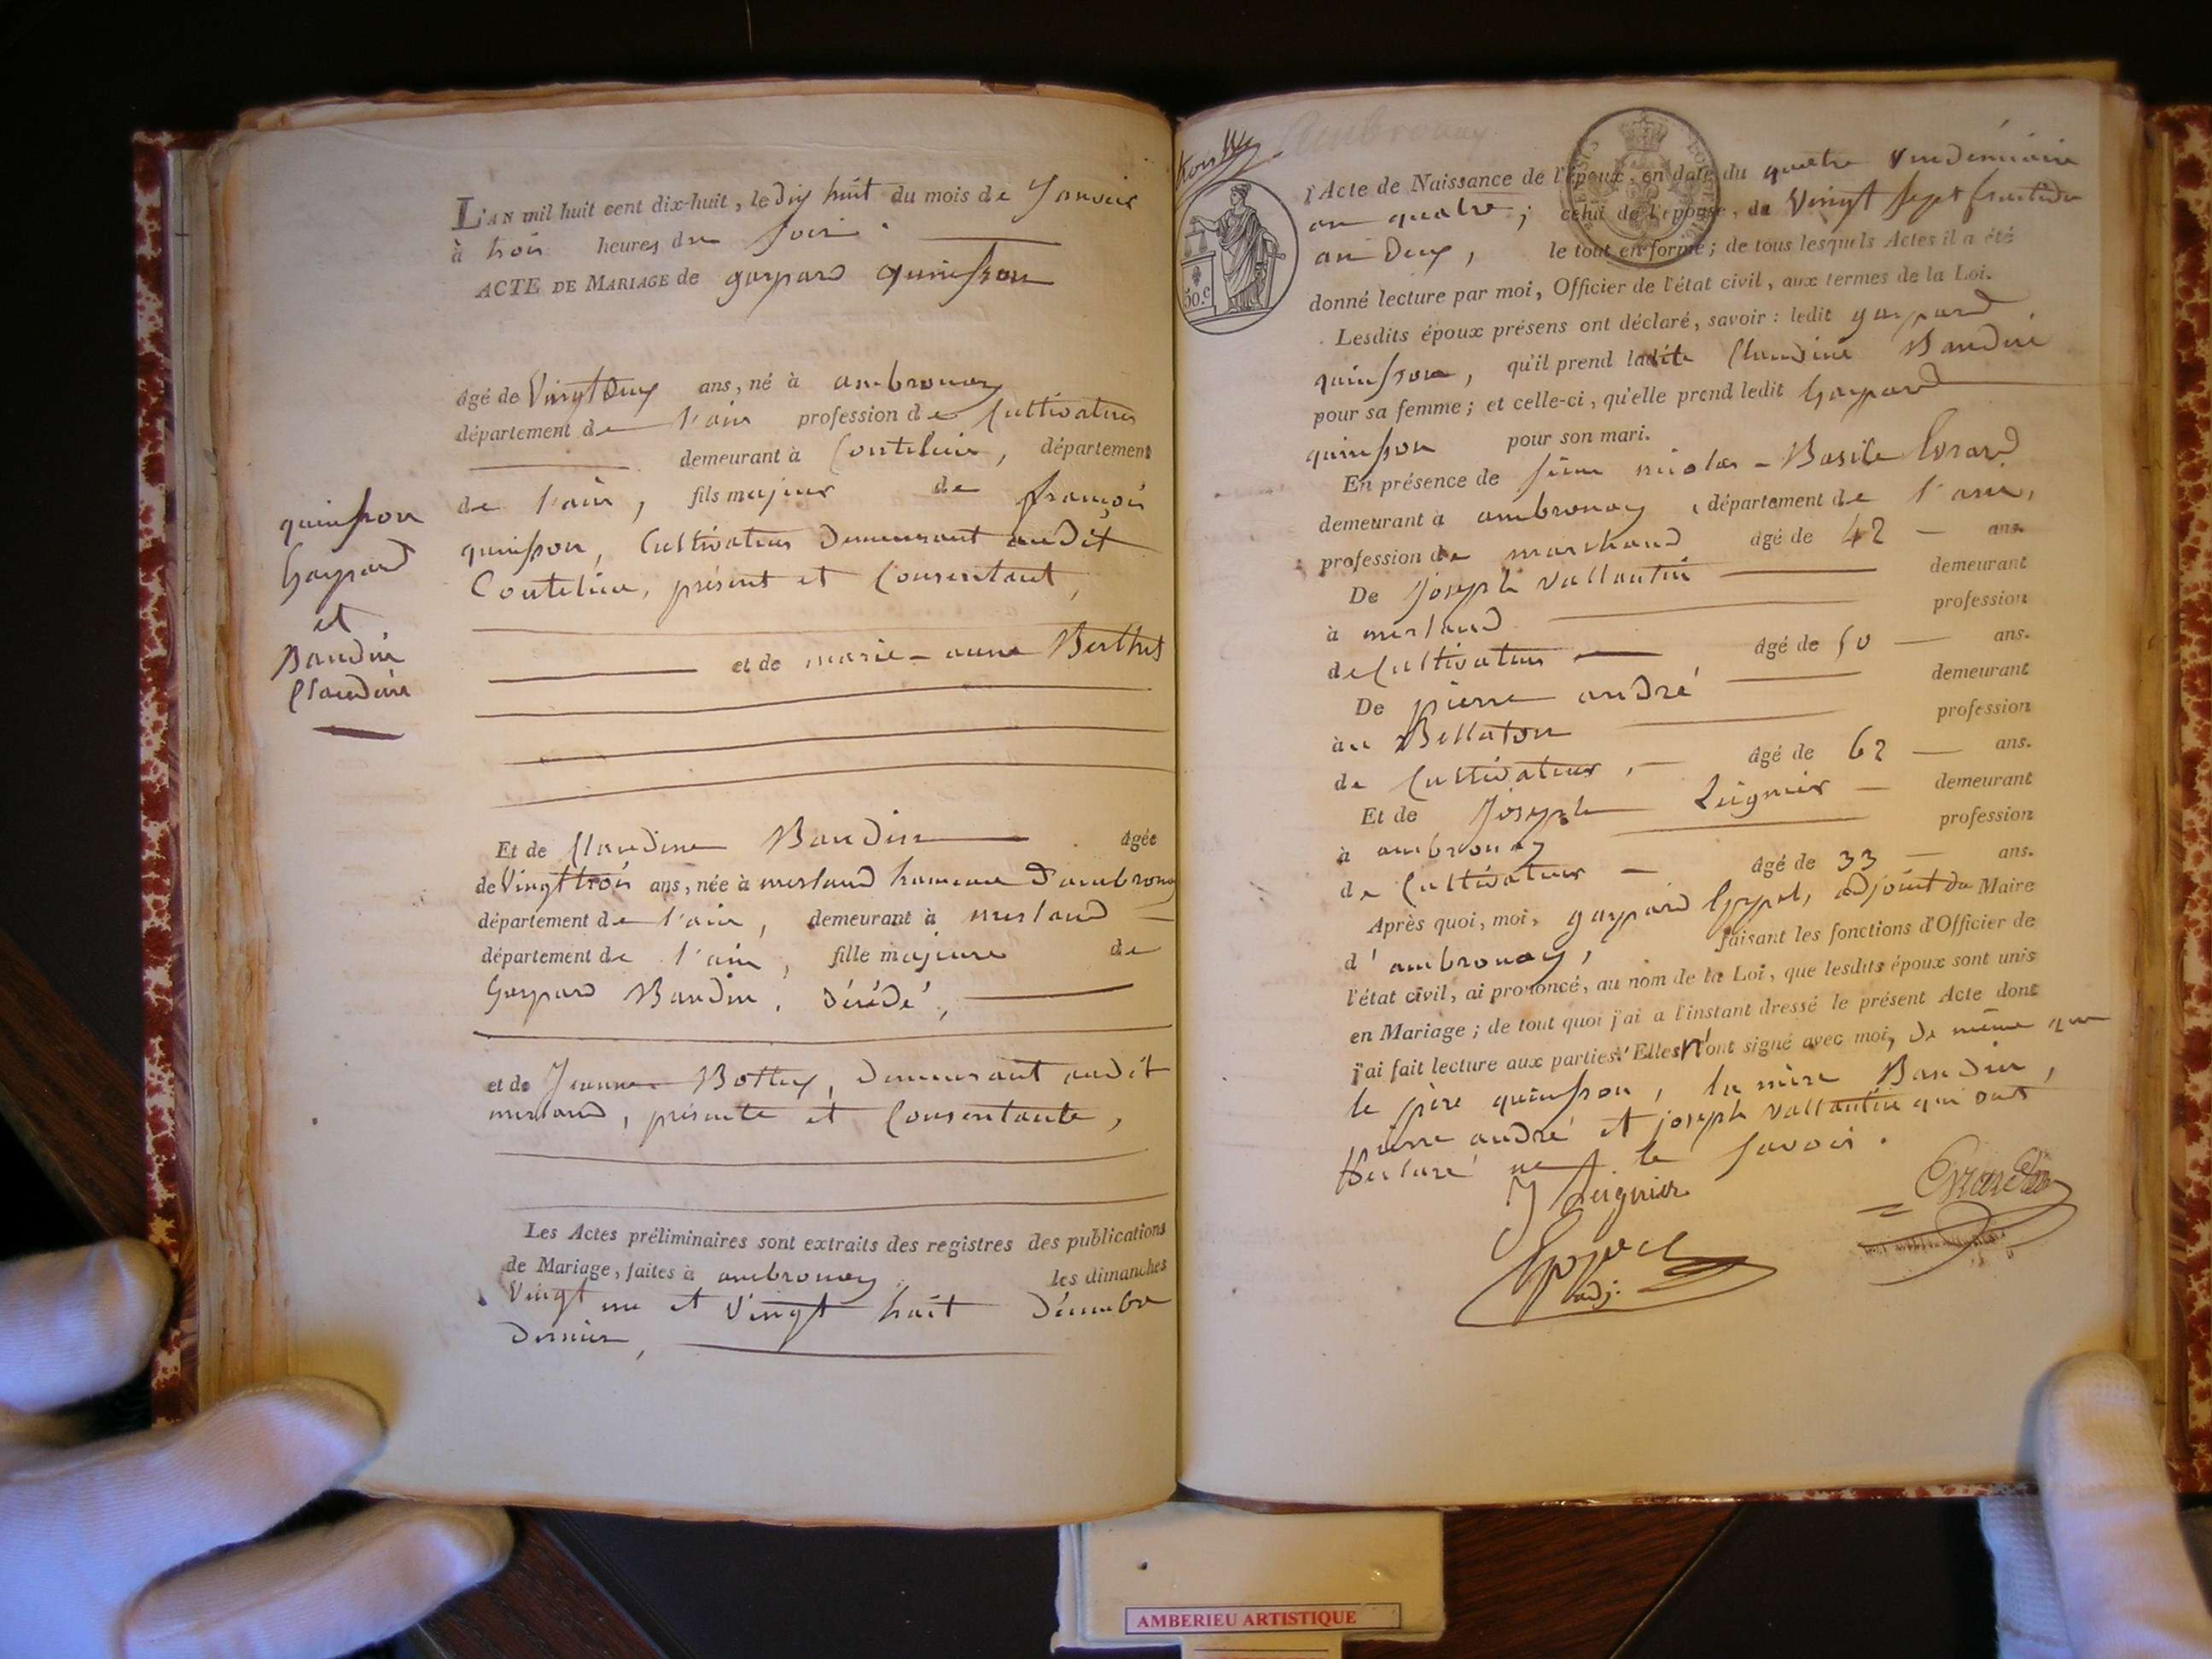 L'AN mil huit cent dix-huit, le dix huit du mois de Janvier
à trois heures du soir.
ACTE DE MARIAGE de gaspard quinsson
âgé de Vingt Deux ans, né à ambronay
département de l'ain profession de Cultivateur
demeurant à Coutelieu, département
de l'ain, fils majeur de françois
quinsson, Cultivateur Demeurant audit
Coutelieu, présent et Consentant,
et de marie-anne Berthet
quinsson
Gaspard
et
Baudin
Claudine
Et de Claudine Baudin âgée
de Vingt trois ans, née à merland hameau D'ambronay
département de l'ain, demeurant à merland
département de l'ain, fille majeure de
Gaspard Baudin, Décédé,
et de Jeanne Bottex, Demeurant audit
merland, présente et Consentante,
Les Actes préliminaires sont extraits des registres des publications
de Mariage, faites à ambronay les dimanches
Vingt un et Vingt huit Décembre
Dernier,
Ambronay
50.c
l'Acte de Naissance de l'époux, en date du quatre Vendémiaire
an quatre; celui de l'épouse, du Vingt sept fructidor
an Deux, le tout en forme; de tous lesquels Actes il a été
donné lecture par moi, Officier de l'état civil, aux termes de la Loi.
Lesdits époux présens ont déclaré, savoir: ledit gaspard
quinsson, qu'il prend ladite Claudine Baudin
pour sa femme; et celle-ci, qu'elle prend ledit Gaspard
quinsson pour son mari.
En présence de sieur nicolas-Basile Evrard
demeurant à ambronay, département de l'ain,
profession de marchand âgé de 42 ans.
De Joseph Vallantin demeurant
à merland profession
de Cultivateur âgé de 50 ans.
De pierre andré demeurant
au Bellaton profession
de Cultivateur, âgé de 62 ans.
Et de Joseph Leignier demeurant
à ambronay profession
de Cultivateur âgé de 33 ans.
Après quoi, moi, gaspard Goppel, adjoint du Maire
d'ambronay, faisant les fonctions d'Officier de
l'état civil, ai prononcé, au nom de la Loi, que lesdits époux sont unis
en Mariage; de tout quoi j'ai à l'instant dressé le présent Acte dont
j'ai fait lecture aux parties. Elles n'ont signé avec moi, de même que
le père quinsson, la mère Baudin,
pierre andré et joseph vallantin qui ont
Déclaré ne le savoir.
J Leignier
Evrard
adj.
AMBERIEU ARTISTIQUE